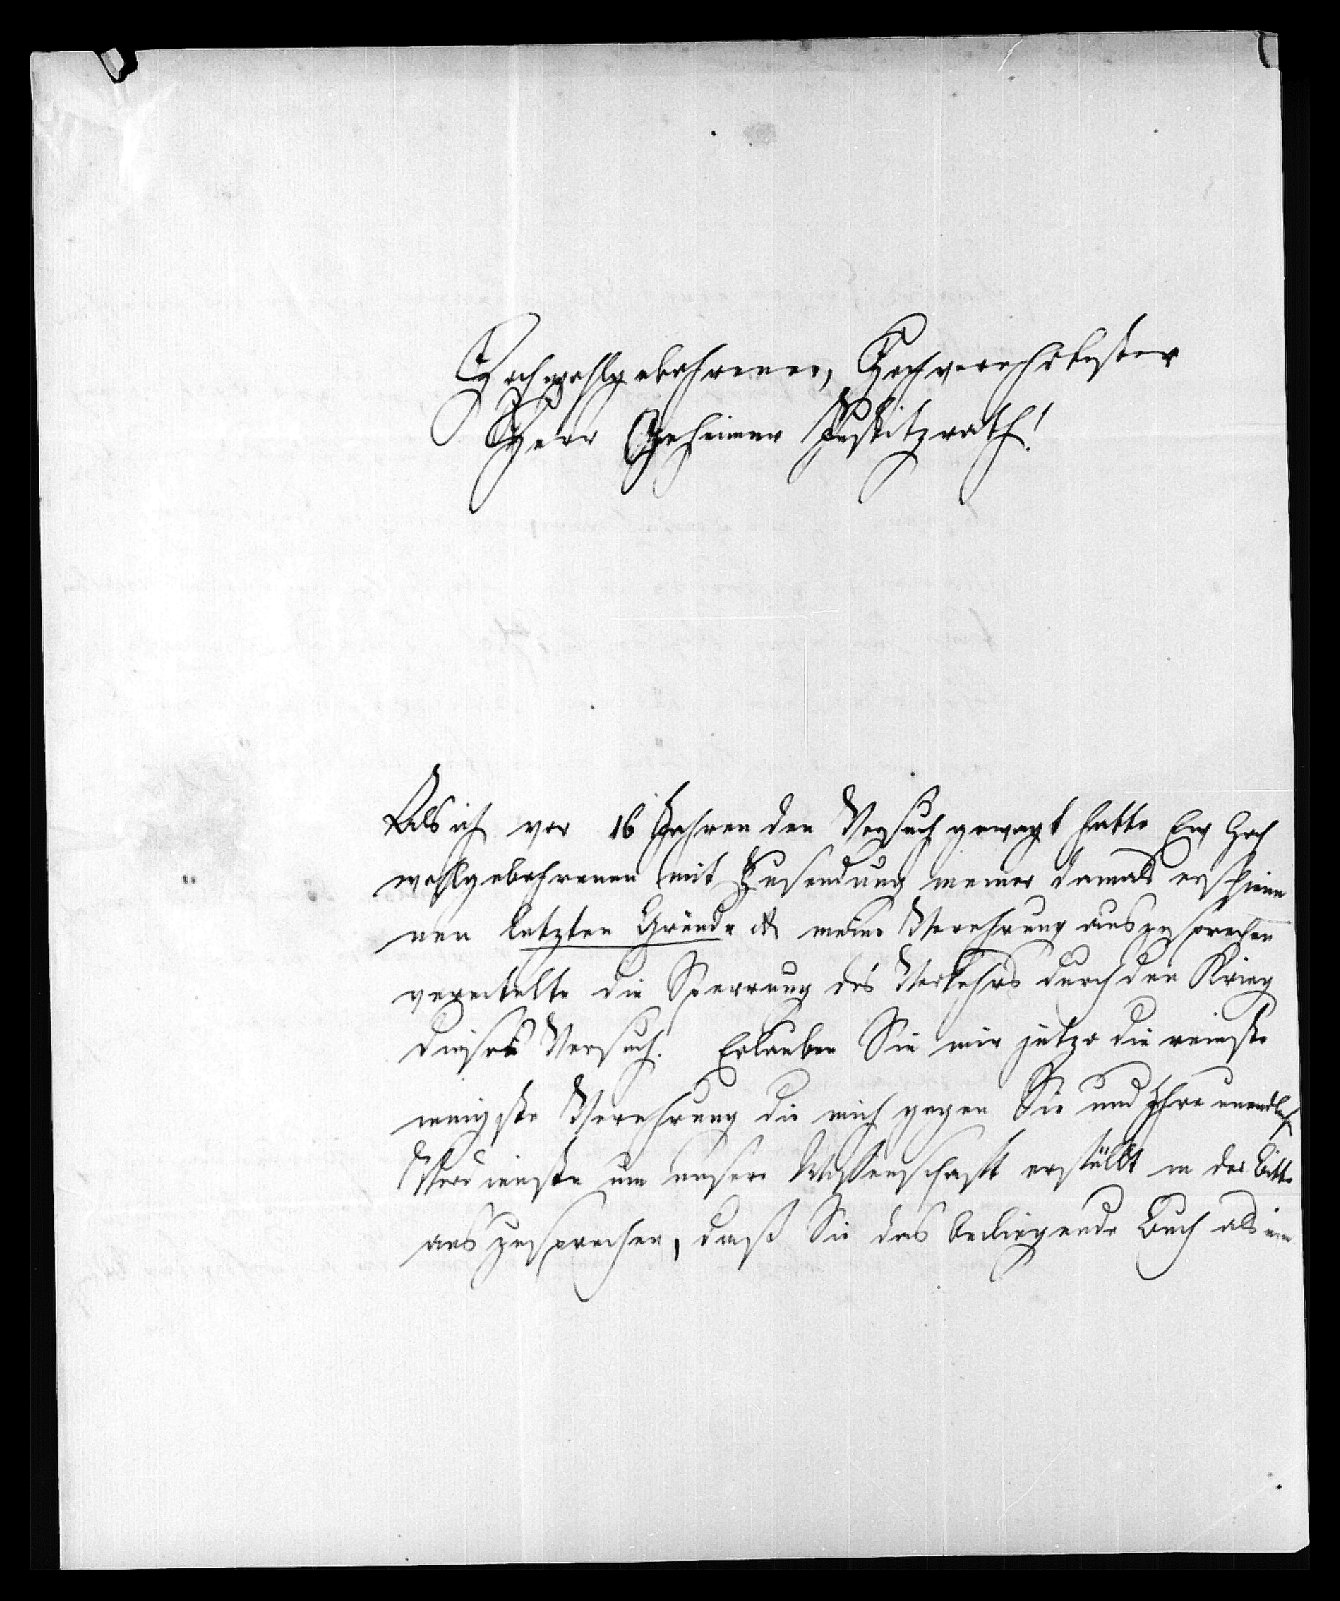 Hochwohlgebohrener, Hochverehrtester
Herr Geheimer Justitzrath!
Als ich vor 16 Jahren den Versuch gewagt hatte Ew Hoch
wohlgebohrenen mit Zusendung meiner damals erschiene
nen letzten Gründe &c meine Verehrung auszusprechen
vereitelte die Sperrung des Verkehrs durch den Krieg
diesen Versuch. Erlauben Sie mir jetzo die reinste
innigste Verehrung die mich gegen Sie und Ihre unendlich
Verdienste um unsere Wissenschaft erfüllt in der Bitte
auszusprechen, daß Sie das beiliegende Buch als ein